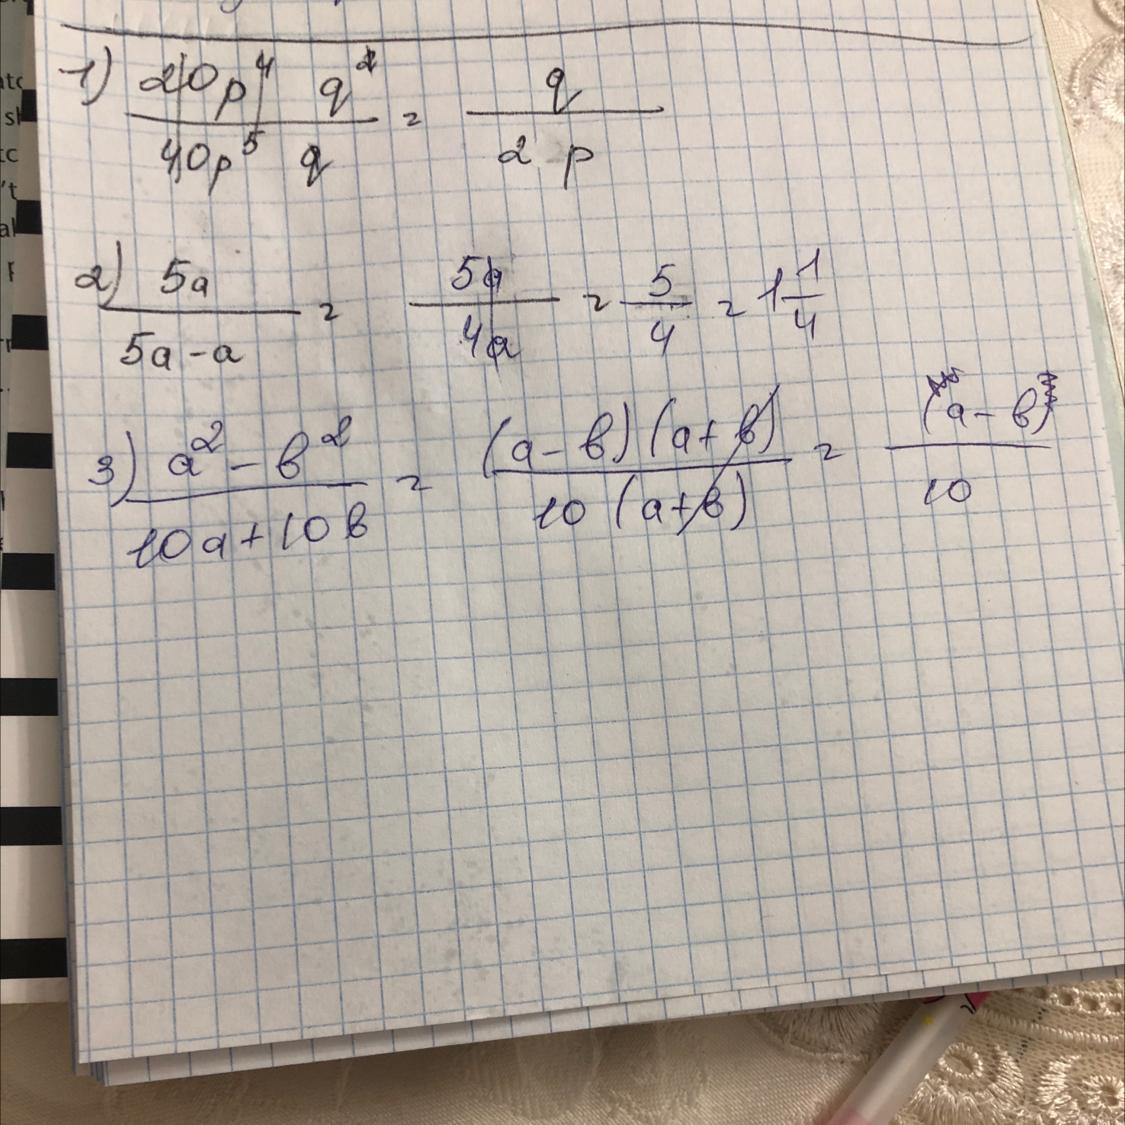 1) 20p⁴ q² / 40p⁵ q = q / 2p
2) 5a / 5a-a = 5a / 4a = 5/4 = 1 1/4
3) a² - b² / 10a + 10b = (a - b)(a + b) / 10(a + b) = (a - b) / 10